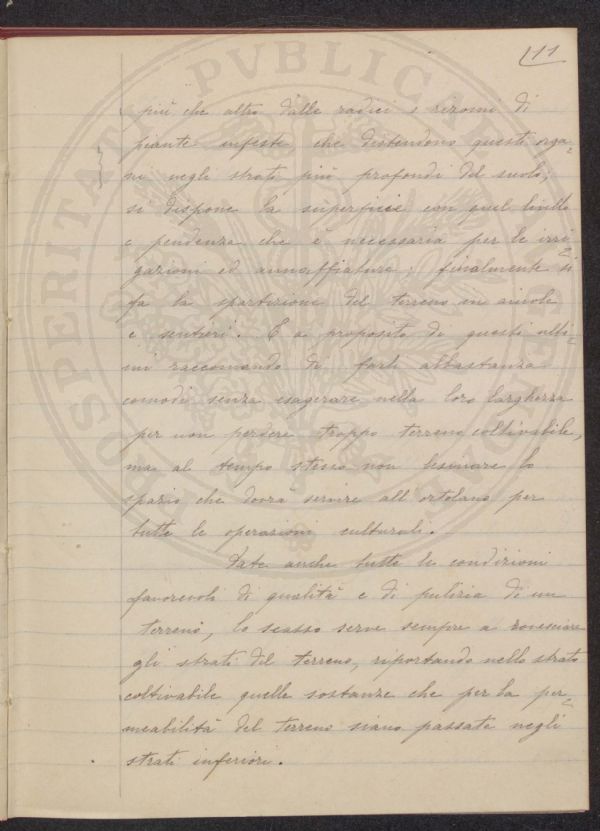 11
più che altro dalle radici e rizomi di
piante infeste che distendono questi orga=
ni negli strati più profondi del suolo;
si dispone la superficie con quel livello
e pendenza che è necessaria per le irri=
gazioni ed annaffiature; finalmente si
fa la spartizione del terreno in aiuole
e sentieri. E a proposito di questi ulti=
mi raccomando di farli abbastanza
comodi senza esagerare nella loro larghezza
per non perdere troppo terreno coltivabile,
ma al tempo stesso non lesinare lo
spazio che dovrà servire all'ortolano per
tutte le operazioni culturali.
Date anche tutte le condizioni
favorevoli di qualità e di pulizia di un
terreno, lo scasso serve sempre a rovesciare
gli strati del terreno, riportando nello strato
coltivabile quelle sostanze che per la per=
meabilità del terreno siano passate negli
strati inferiori.
PROSPERITATI PVBLICAE